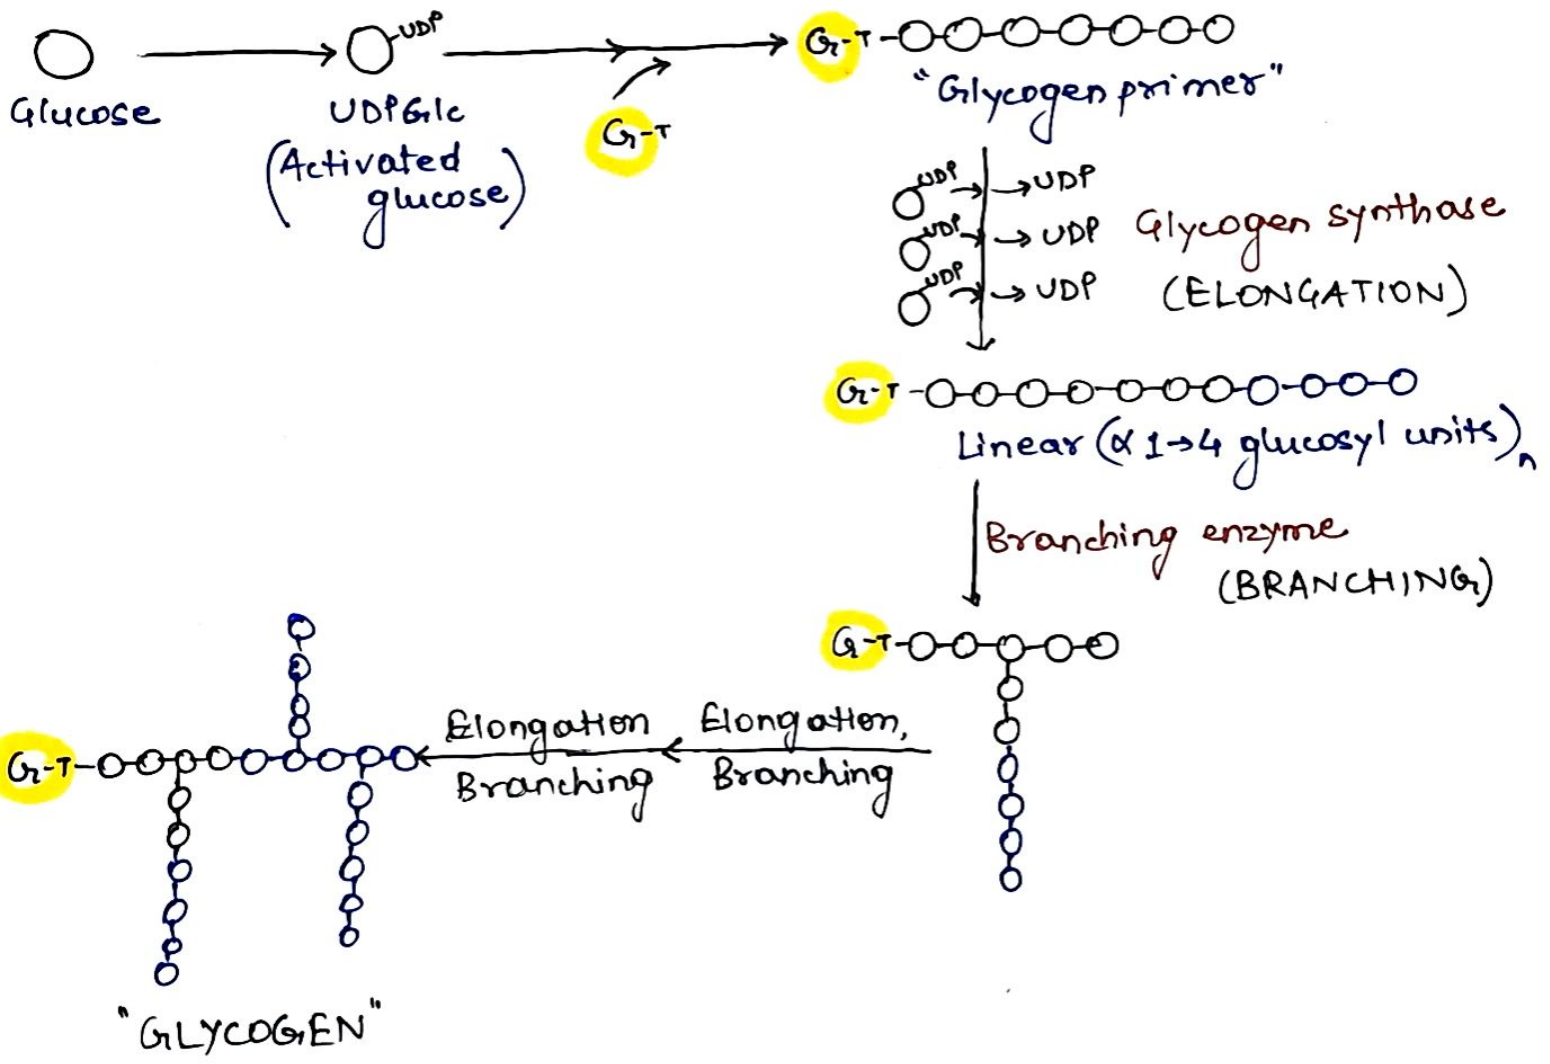 UDP
G-T
Glucose
UDPGlc
(Activated
glucose)
G-T
"Glycogen primer"
UDP → UDP
UDP → UDP
UDP → UDP
Glycogen synthase
(ELONGATION)
G-T
Linear (α 1→4 glucosyl units)n
Branching enzyme
(BRANCHING)
G-T
Elongation,
Branching
Elongation
Branching
G-T
"GLYCOGEN"